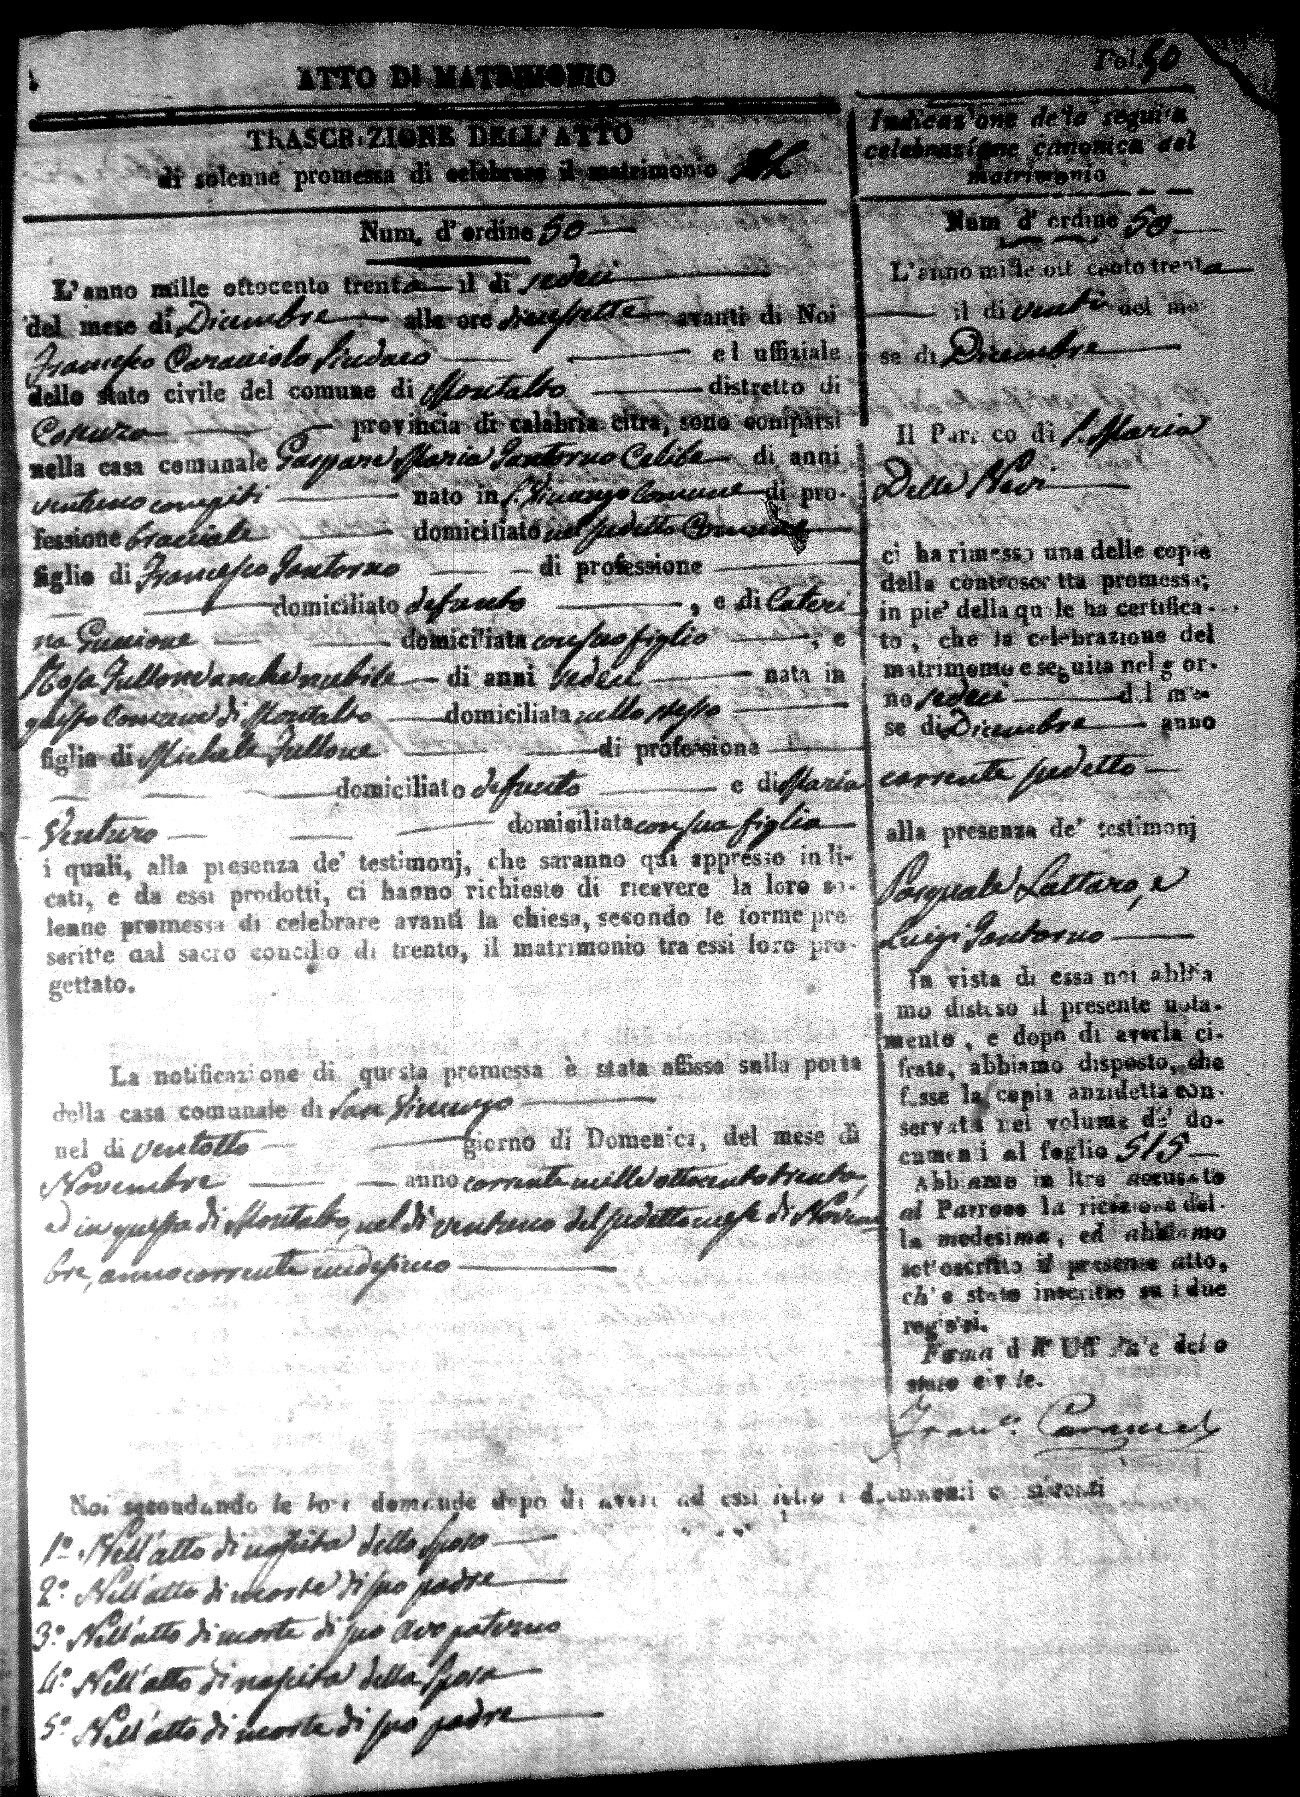 Fol. 50
ATTO DI MATRIMONIO
TRASCRIZIONE DELL'ATTO
di solenne promessa di celebrare il matrimonio
Num. d'ordine 50
L'anno mille ottocento trenta il di sedeci
del mese di Dicembre alle ore diecisette avanti di Noi
Francesco Caracciolo Sindaco ed uffiziale
dello stato civile del comune di Montalto distretto di
Cosenza provincia di calabria citra, sono comparsi
nella casa comunale Gaspare Maria Santorno Celibe di anni
ventuno compiti nato in S. Vincenzo Comune di pro-
fessione bracciale domiciliato nel sudetto Comune
figlio di Francesco Santorno di professione
domiciliato defunto , e di Cateri
na Guccione domiciliata con suo figlio , e
Rosa Fullone anche nubile di anni sedeci nata in
questo Comune di Montalto domiciliata nello stesso
figlia di Michele Fullone di professione
domiciliato defunto e di Maria
Venturo domiciliata con sua figlia
i quali, alla presenza de' testimonj, che saranno qui appresso indi-
cati, e da essi prodotti, ci hanno richiesto di ricevere la loro so-
lenne promessa di celebrare avanti la chiesa, secondo le forme pre
scritte dal sacro concilio di trento, il matrimonio tra essi loro pro-
gettato.
La notificazione di questa promessa è stata affissa sulla porta
della casa comunale di San Vincenzo
nel di ventotto giorno di Domenica, del mese di
Novembre anno corrente mille ottocento trenta,
ed in questa di Montalto, nel di ventuno del sudetto mese di Novem
bre, anno corrente medesimo
Noi secondando le loro domande dopo di avere ad essi letto i documenti consistenti
1.º Nell'atto di nascita dello sposo
2.º Nell'atto di morte di suo padre
3.º Nell'atto di morte di suo avo paterno
4.º Nell'atto di nascita della sposa
5.º Nell'atto di morte di suo padre
Indicazione della seguita
celebrazione canonica del
matrimonio
Num d'ordine 50
L'anno mille ott cento trenta
il di venti del me
se di Dicembre
Il Parroco di S. Maria
Delle Nevi
ci ha rimesso una delle copie
della controscritta promessa;
in pie' della quale ha certifica-
to, che la celebrazione del
matrimonio e seguita nel gior-
no sedeci del me
se di Dicembre anno
corrente sudetto
alla presenza de' testimonj
Pasquale Lattaro, e
Luigi Santorno
In vista di essa noi abbia
mo disteso il presente nota-
mento, e dopo di averla ci-
frata, abbiamo disposto, che
fosse la copia anzidetta con-
servata nel volume de' do-
cumenti al foglio 515
Abbiamo inoltre accusato
al Parroco la ricezione del-
la medesima, ed abbiamo
sottoscritto il presente atto,
ch'e stato inscritto su i due
registri.
Firma dell'Uffiziale dello
stato civile.